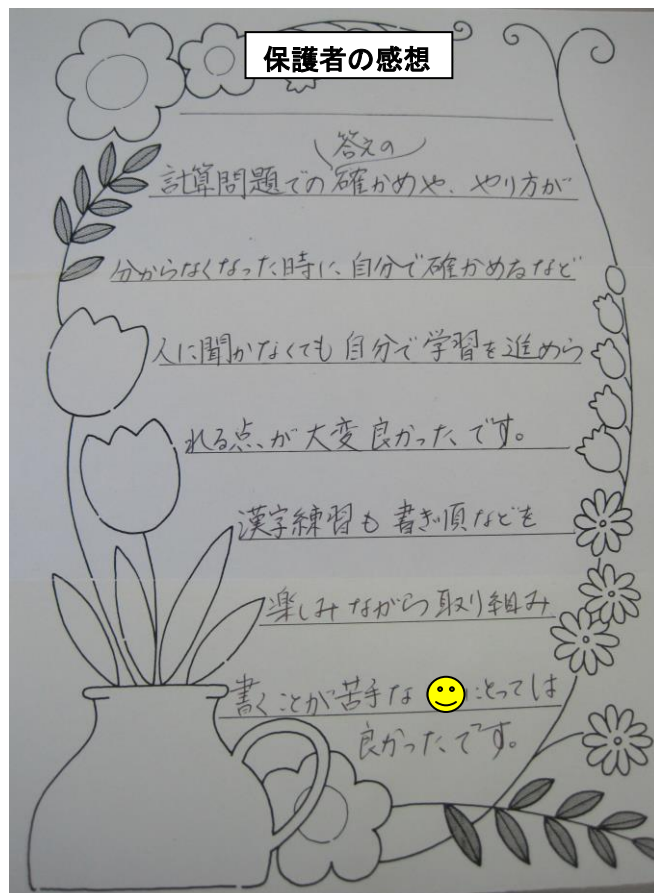 保護者の感想
答えの
計算問題での確かめや、やり方が
分からなくなった時に、自分で確かめるなど
人に聞かなくても自分で学習を進めら
れる点が大変良かったです。
漢字練習も書き順などを
楽しみながら取り組み
書くことが苦手な とっては
良かったです。